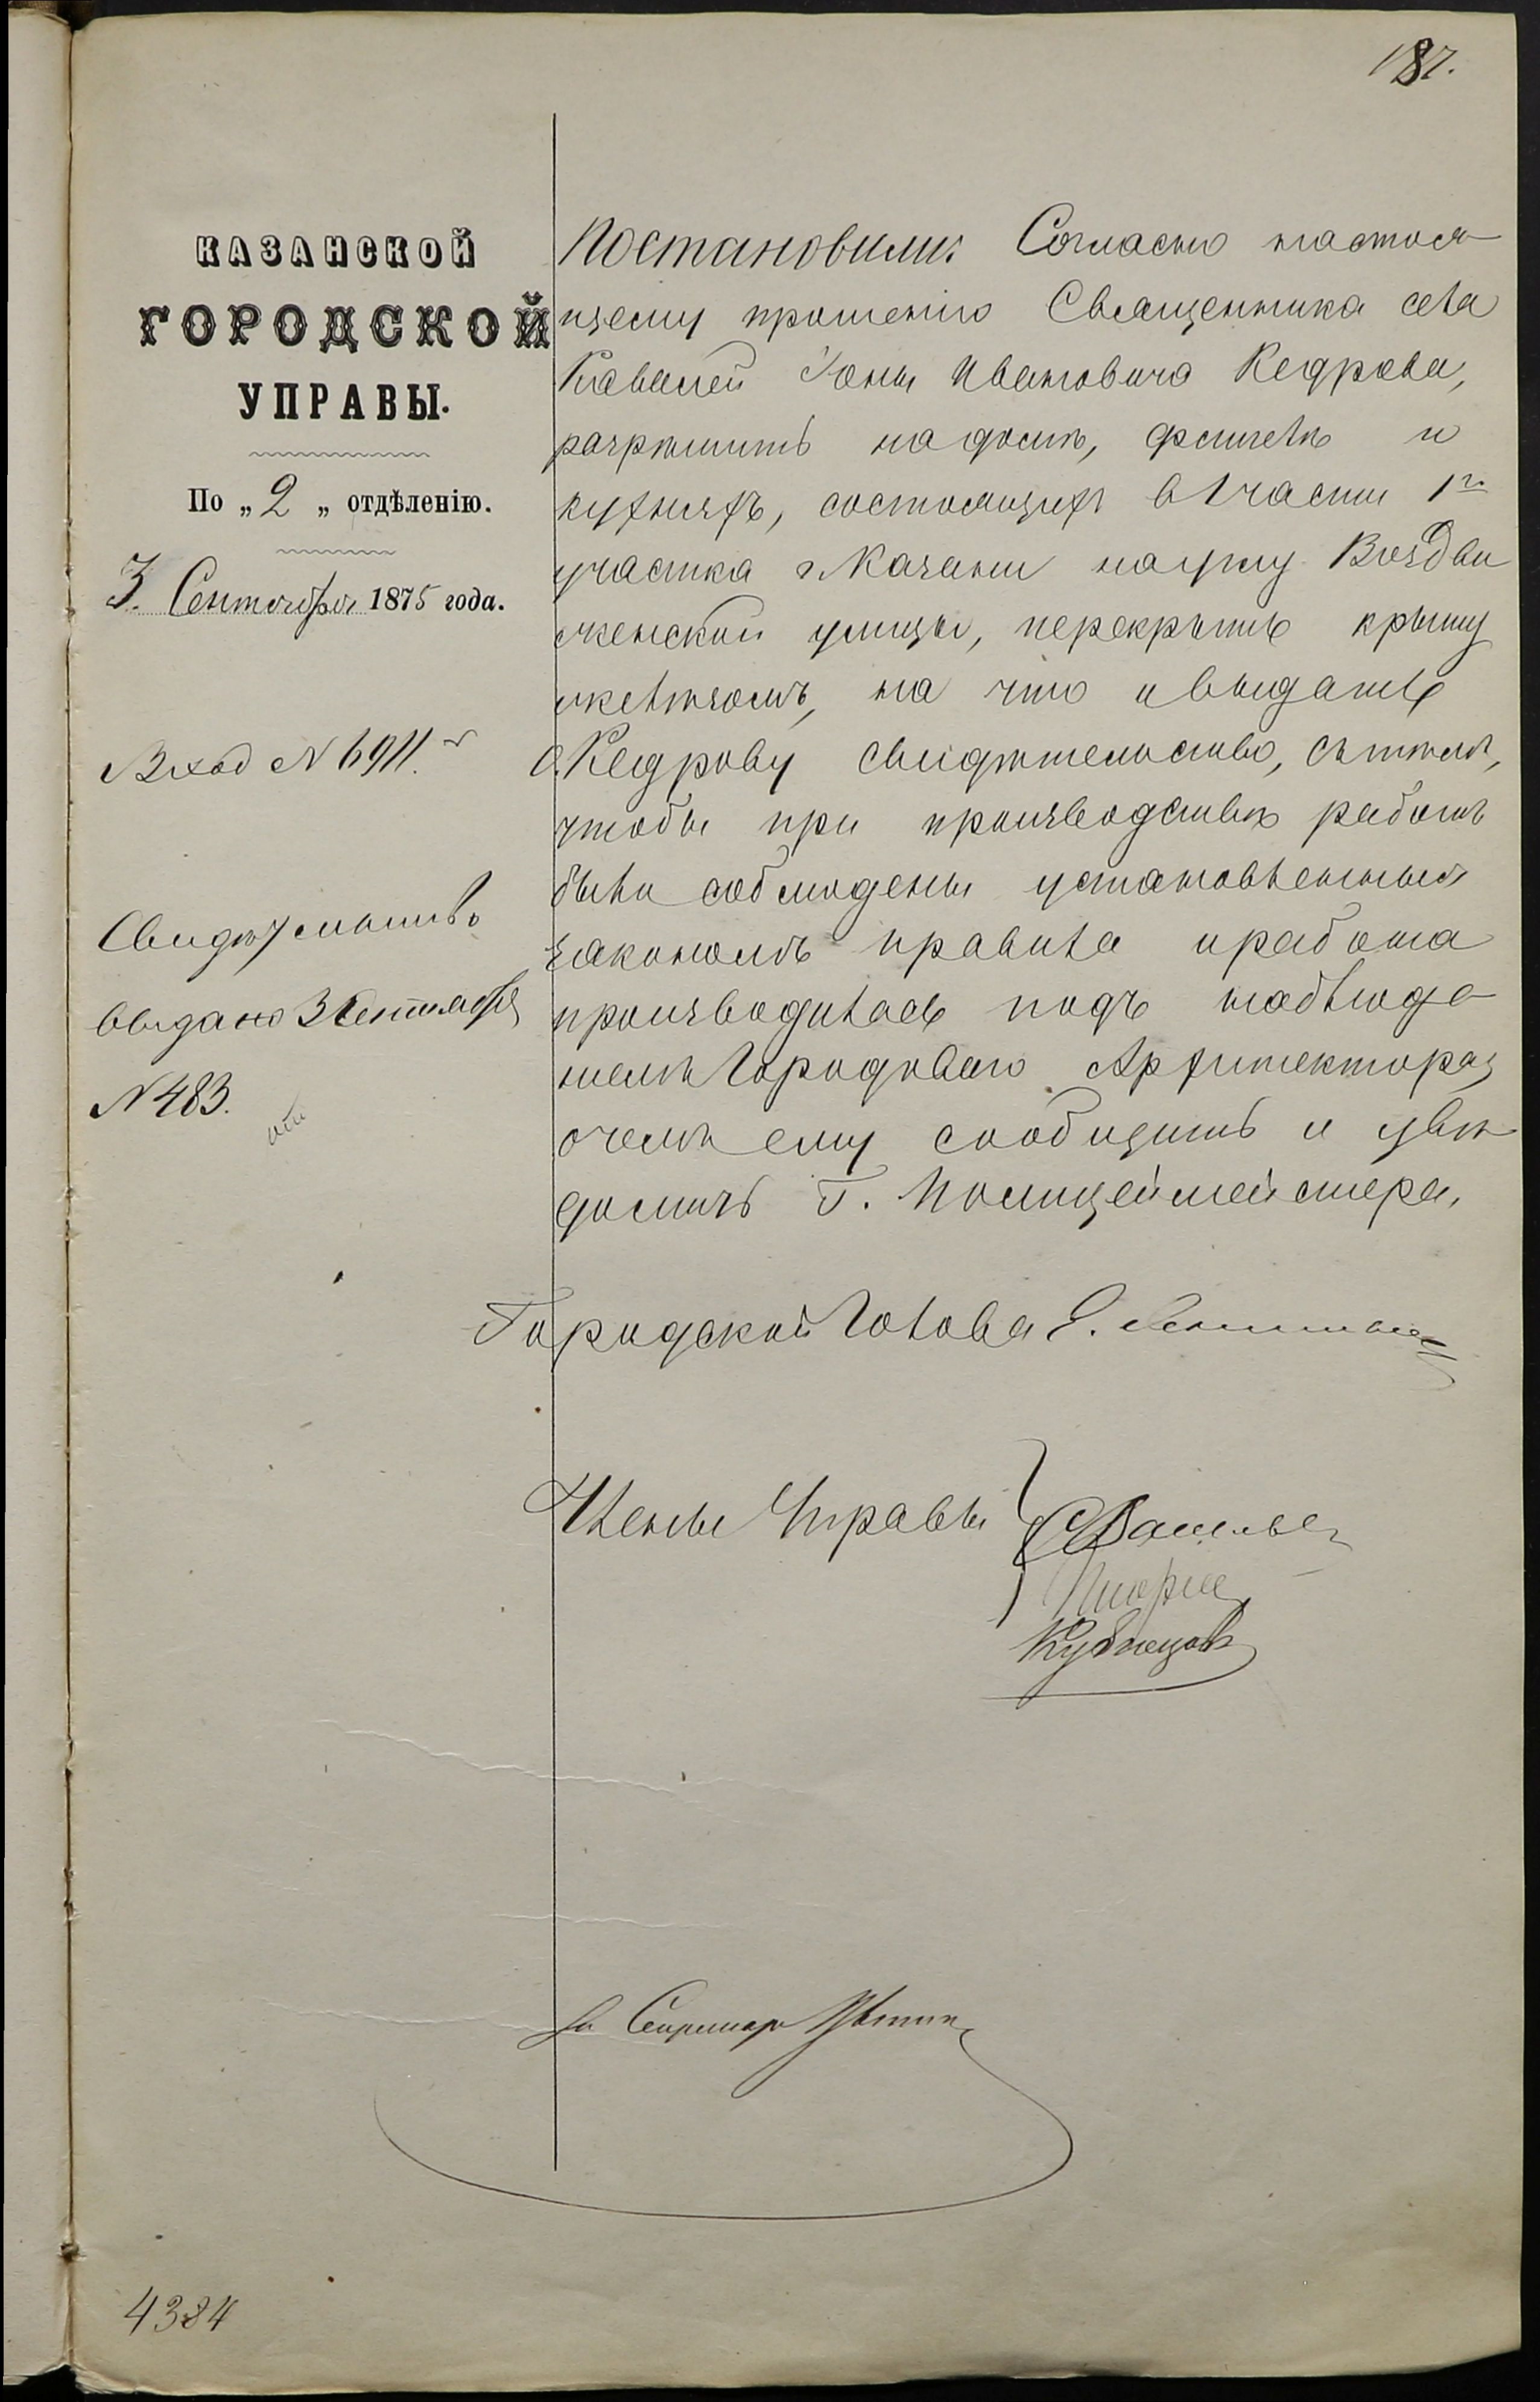 187.
КАЗАНСКОЙ
ГОРОДСКОЙ
УПРАВЫ.
По „2„ отдѣленію.
3. Сентября 1875 года.
Вход N 6911.
Свидѣтельство
выдано 3 Сентября
N 483.
Постановили: Согласно настоя
щему прошенію Священника села
Іоны Ивановича Кедрова,
разрѣшить на домѣ, флигелѣ и
кухняхъ, состоящихъ въ 1 части 1го
участка г. Казани на углу Воздви
женской улицы, перекрыть крышу
желѣзомъ, на что и выдать
о. Кедрову свидѣтельство, съ тѣмъ,
чтобы при производствѣ работъ
были соблюдены установленныя
закономъ правила и работа
производилась подъ наблюде
ніемъ Городоваго Архитектора,
о чемъ ему сообщить и увѣ
домить Г. Полицеймейстера.
Городской Голова Е.
Члены Управы
Васильев
Кузнецовъ
За Секретаря
4384